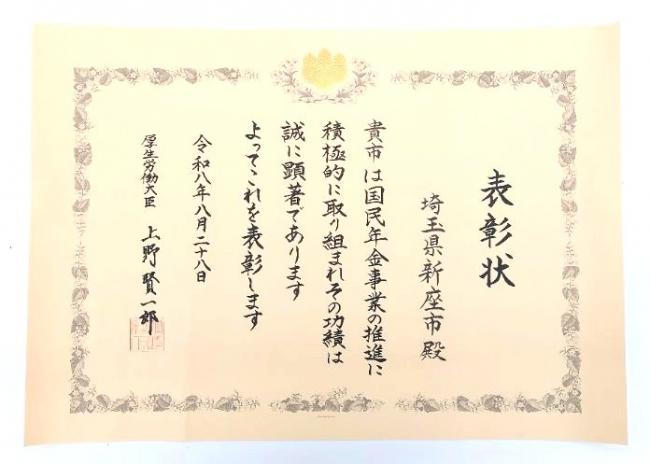 表彰状
埼玉県新座市殿
貴市は国民年金事業の推進に
積極的に取り組まれその功績は
誠に顕著であります
よってこれを表彰します
令和八年八月二十八日
厚生労働大臣 上野賢一郎